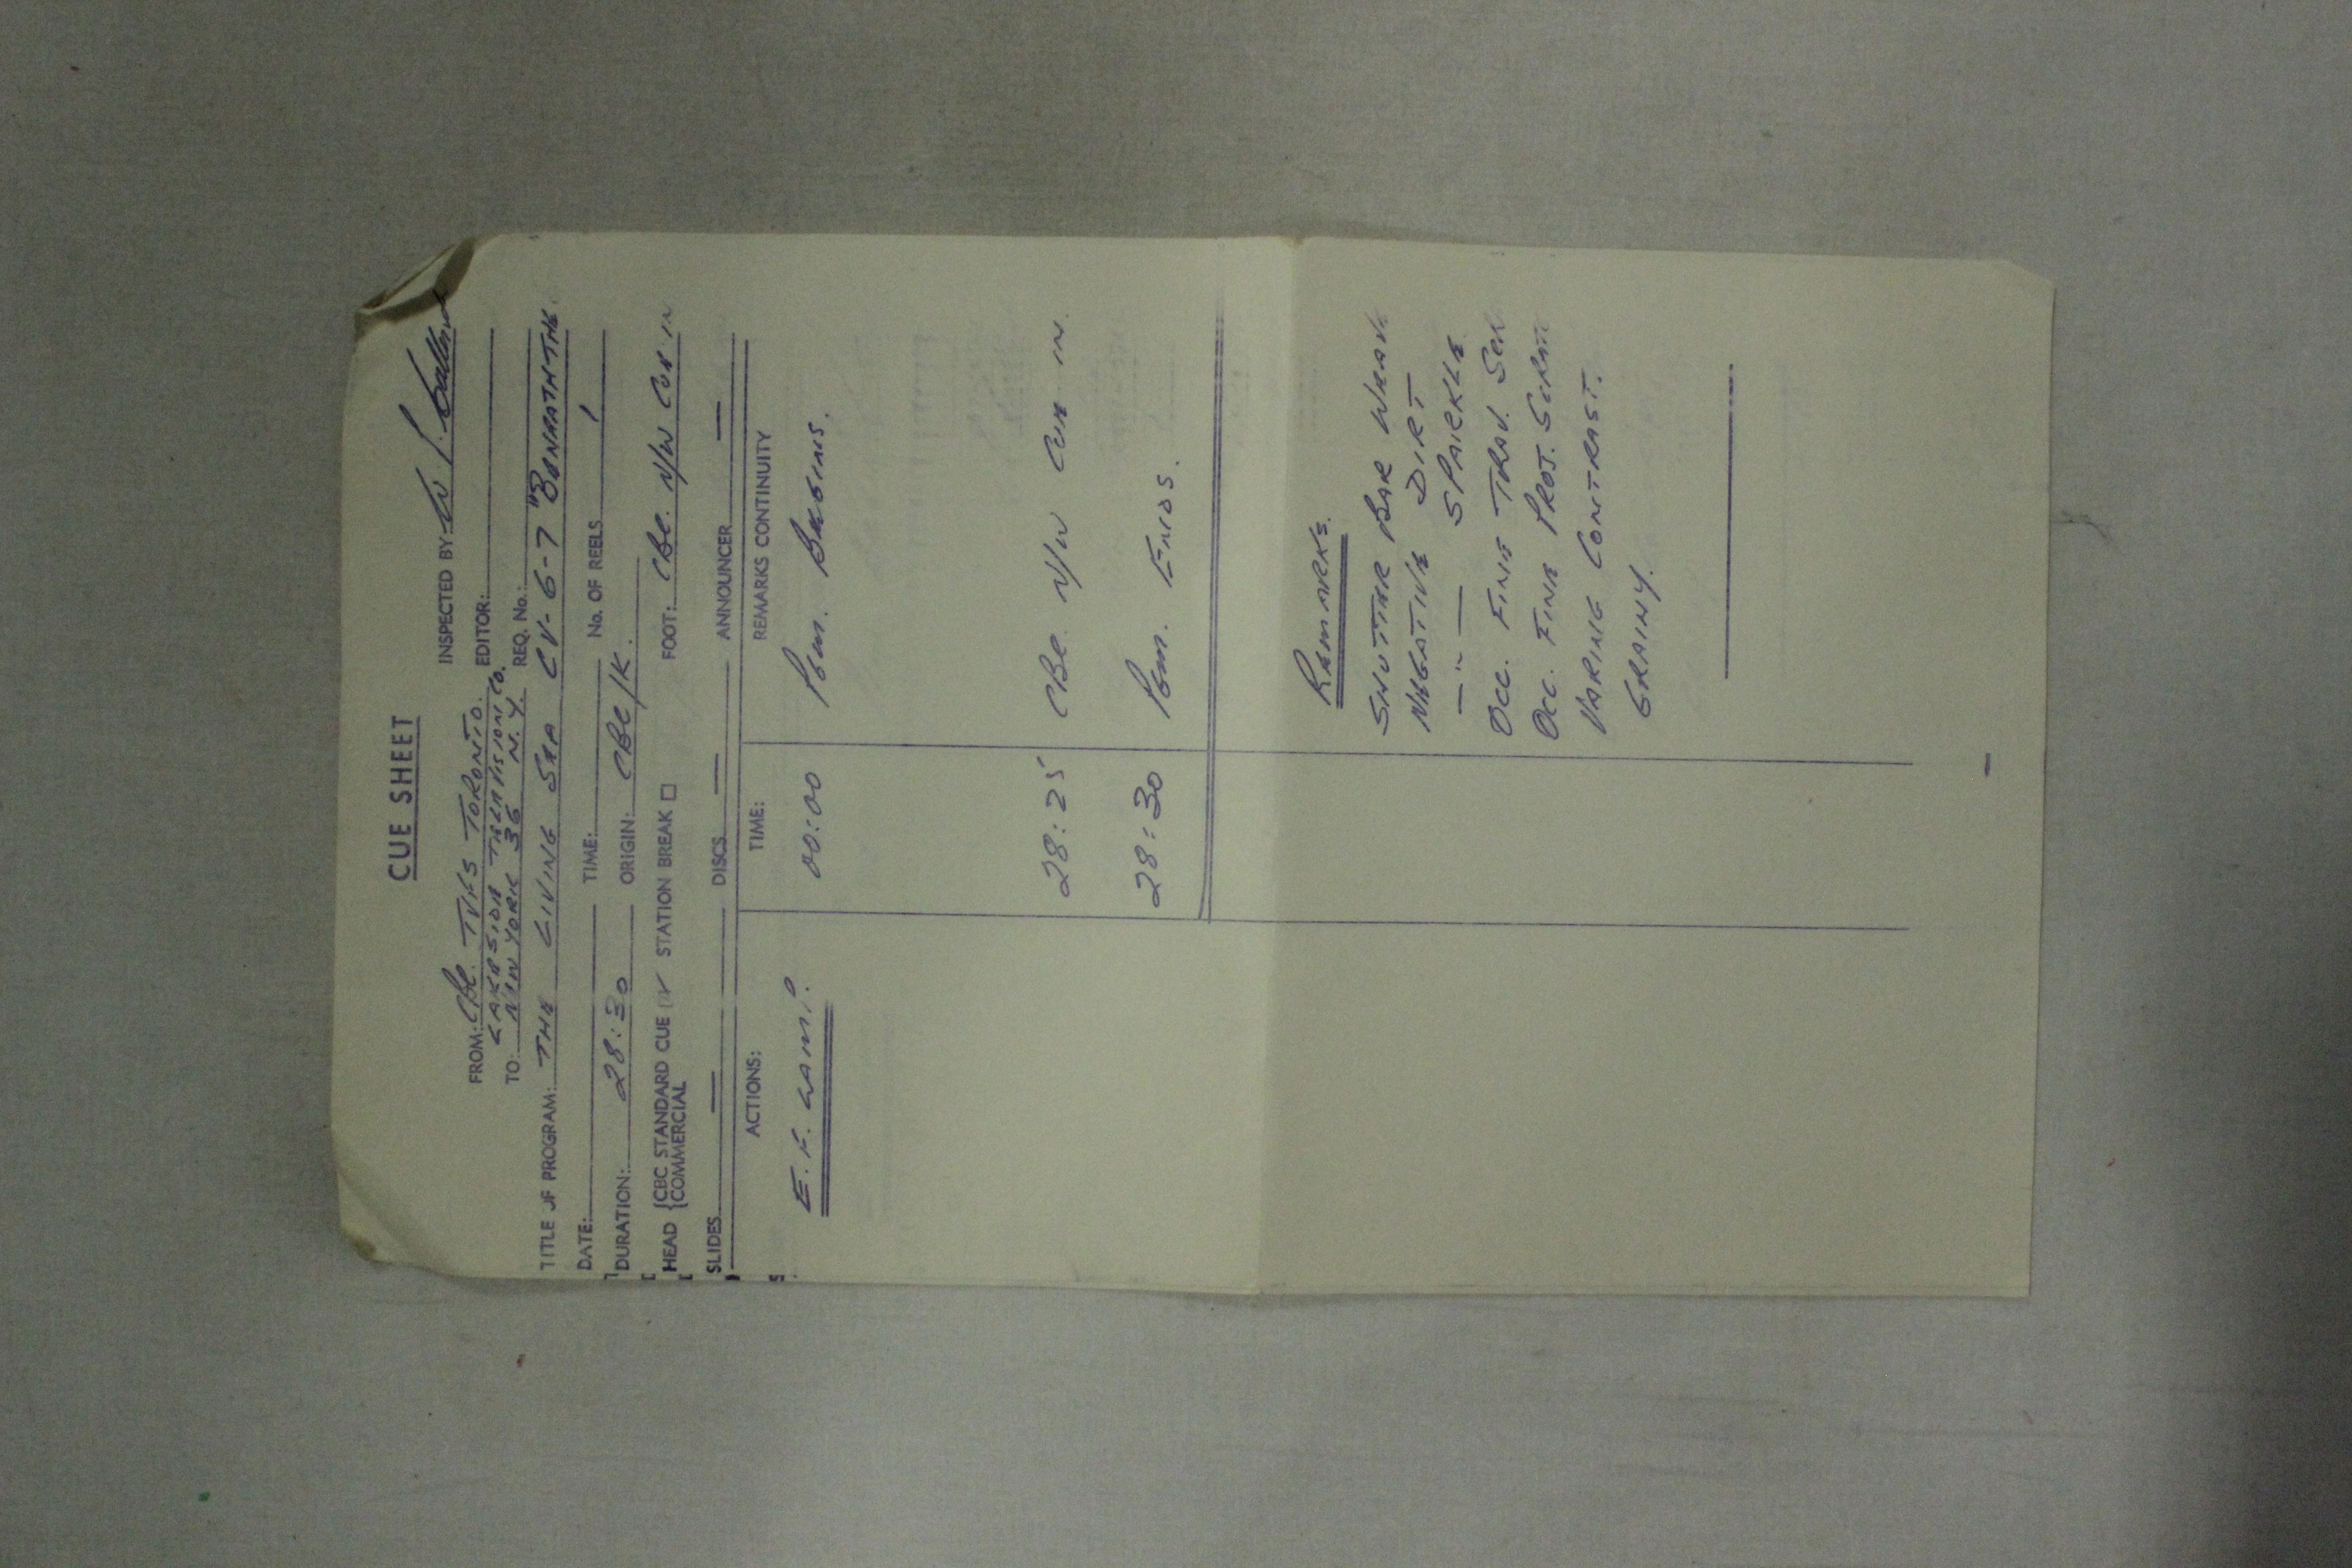 CUE SHEET
INSPECTED BY: W
FROM: CBC. TVFS TORONTO. EDITOR:
LAKESIDE TELEVISION CO.
TO: NEW YORK 36 N.Y. REQ. No.:
TITLE OF PROGRAM: THE LIVING SEA CV-6-7 "BENEATH THE
DATE: TIME: No. OF REELS 1
DURATION: 28:30 ORIGIN: CBC/K.
HEAD {CBC STANDARD CUE ✓ STATION BREAK □ FOOT: CBC. N/W CUE IN
{COMMERCIAL
SLIDES — DISCS — ANNOUNCER —
ACTIONS: TIME: REMARKS CONTINUITY
E.F. LAMP. 00:00 PGM. BEGINS.
28:25 CBC N/W CUE IN.
28:30 PGM. ENDS.
REMARKS.
SHUTTER BAR WEAVE
NEGATIVE DIRT
— " — SPARKLE
OCC. FINE TRAV. SCR
OCC. FINE PROJ. SCRAT
VARING CONTRAST.
GRAINY.